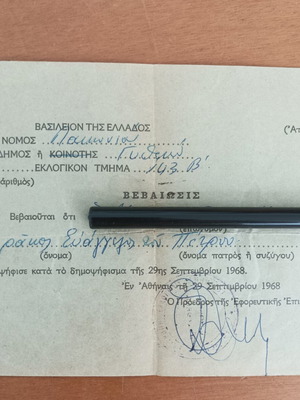 ΒΑΣΙΛΕΙΟΝ ΤΗΣ ΕΛΛΑΔΟΣ
ΝΟΜΟΣ Λακωνίας
ΔΗΜΟΣ ἢ ΚΟΙΝΟΤΗΣ Γυθείου
ΕΚΛΟΓΙΚΟΝ ΤΜΗΜΑ 143 Β'
(ἀριθμὸς)
ΒΕΒΑΙΩΣΙΣ
Βεβαιοῦται ὅτι
Εὐάγγελος Πέτρου
(ὄνομα) (ὄνομα πατρὸς ἢ συζύγου)
ψήφισε κατὰ τὸ δημοψήφισμα τῆς 29ης Σεπτεμβρίου 1968.
Ἐν Ἀθήναις τῇ 29 Σεπτεμβρίου 1968
Ὁ Πρόεδρος τῆς Ἐφορευτικῆς Ἐπι